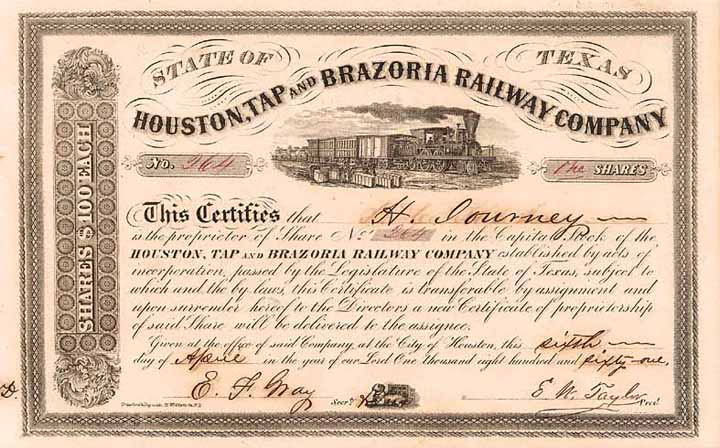 STATE OF TEXAS
HOUSTON, TAP AND BRAZORIA RAILWAY COMPANY
SHARES $100 EACH
NO. 264
One SHARES
This Certifies that H. Journey
is the proprietor of Share No. 264 in the Capital Stock of the
HOUSTON, TAP AND BRAZORIA RAILWAY COMPANY established by acts of
incorporation, passed by the Legislature of the State of Texas, subject to
which and the by laws, this Certificate is transferable by assignment and
upon surrender hereof to the Directors a new Certificate of proprietorship
of said Share will be delivered to the assignee.
Given at the office of said Company, at the City of Houston, this sixth
day of April in the year of our Lord One thousand eight hundred and sixty-one.
E. F. Gray Secry.
E. W. Taylor Presi.